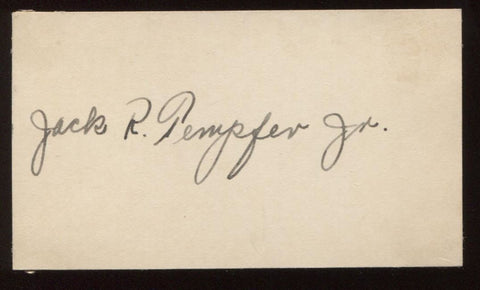 Jack R. Tempfer Jr.